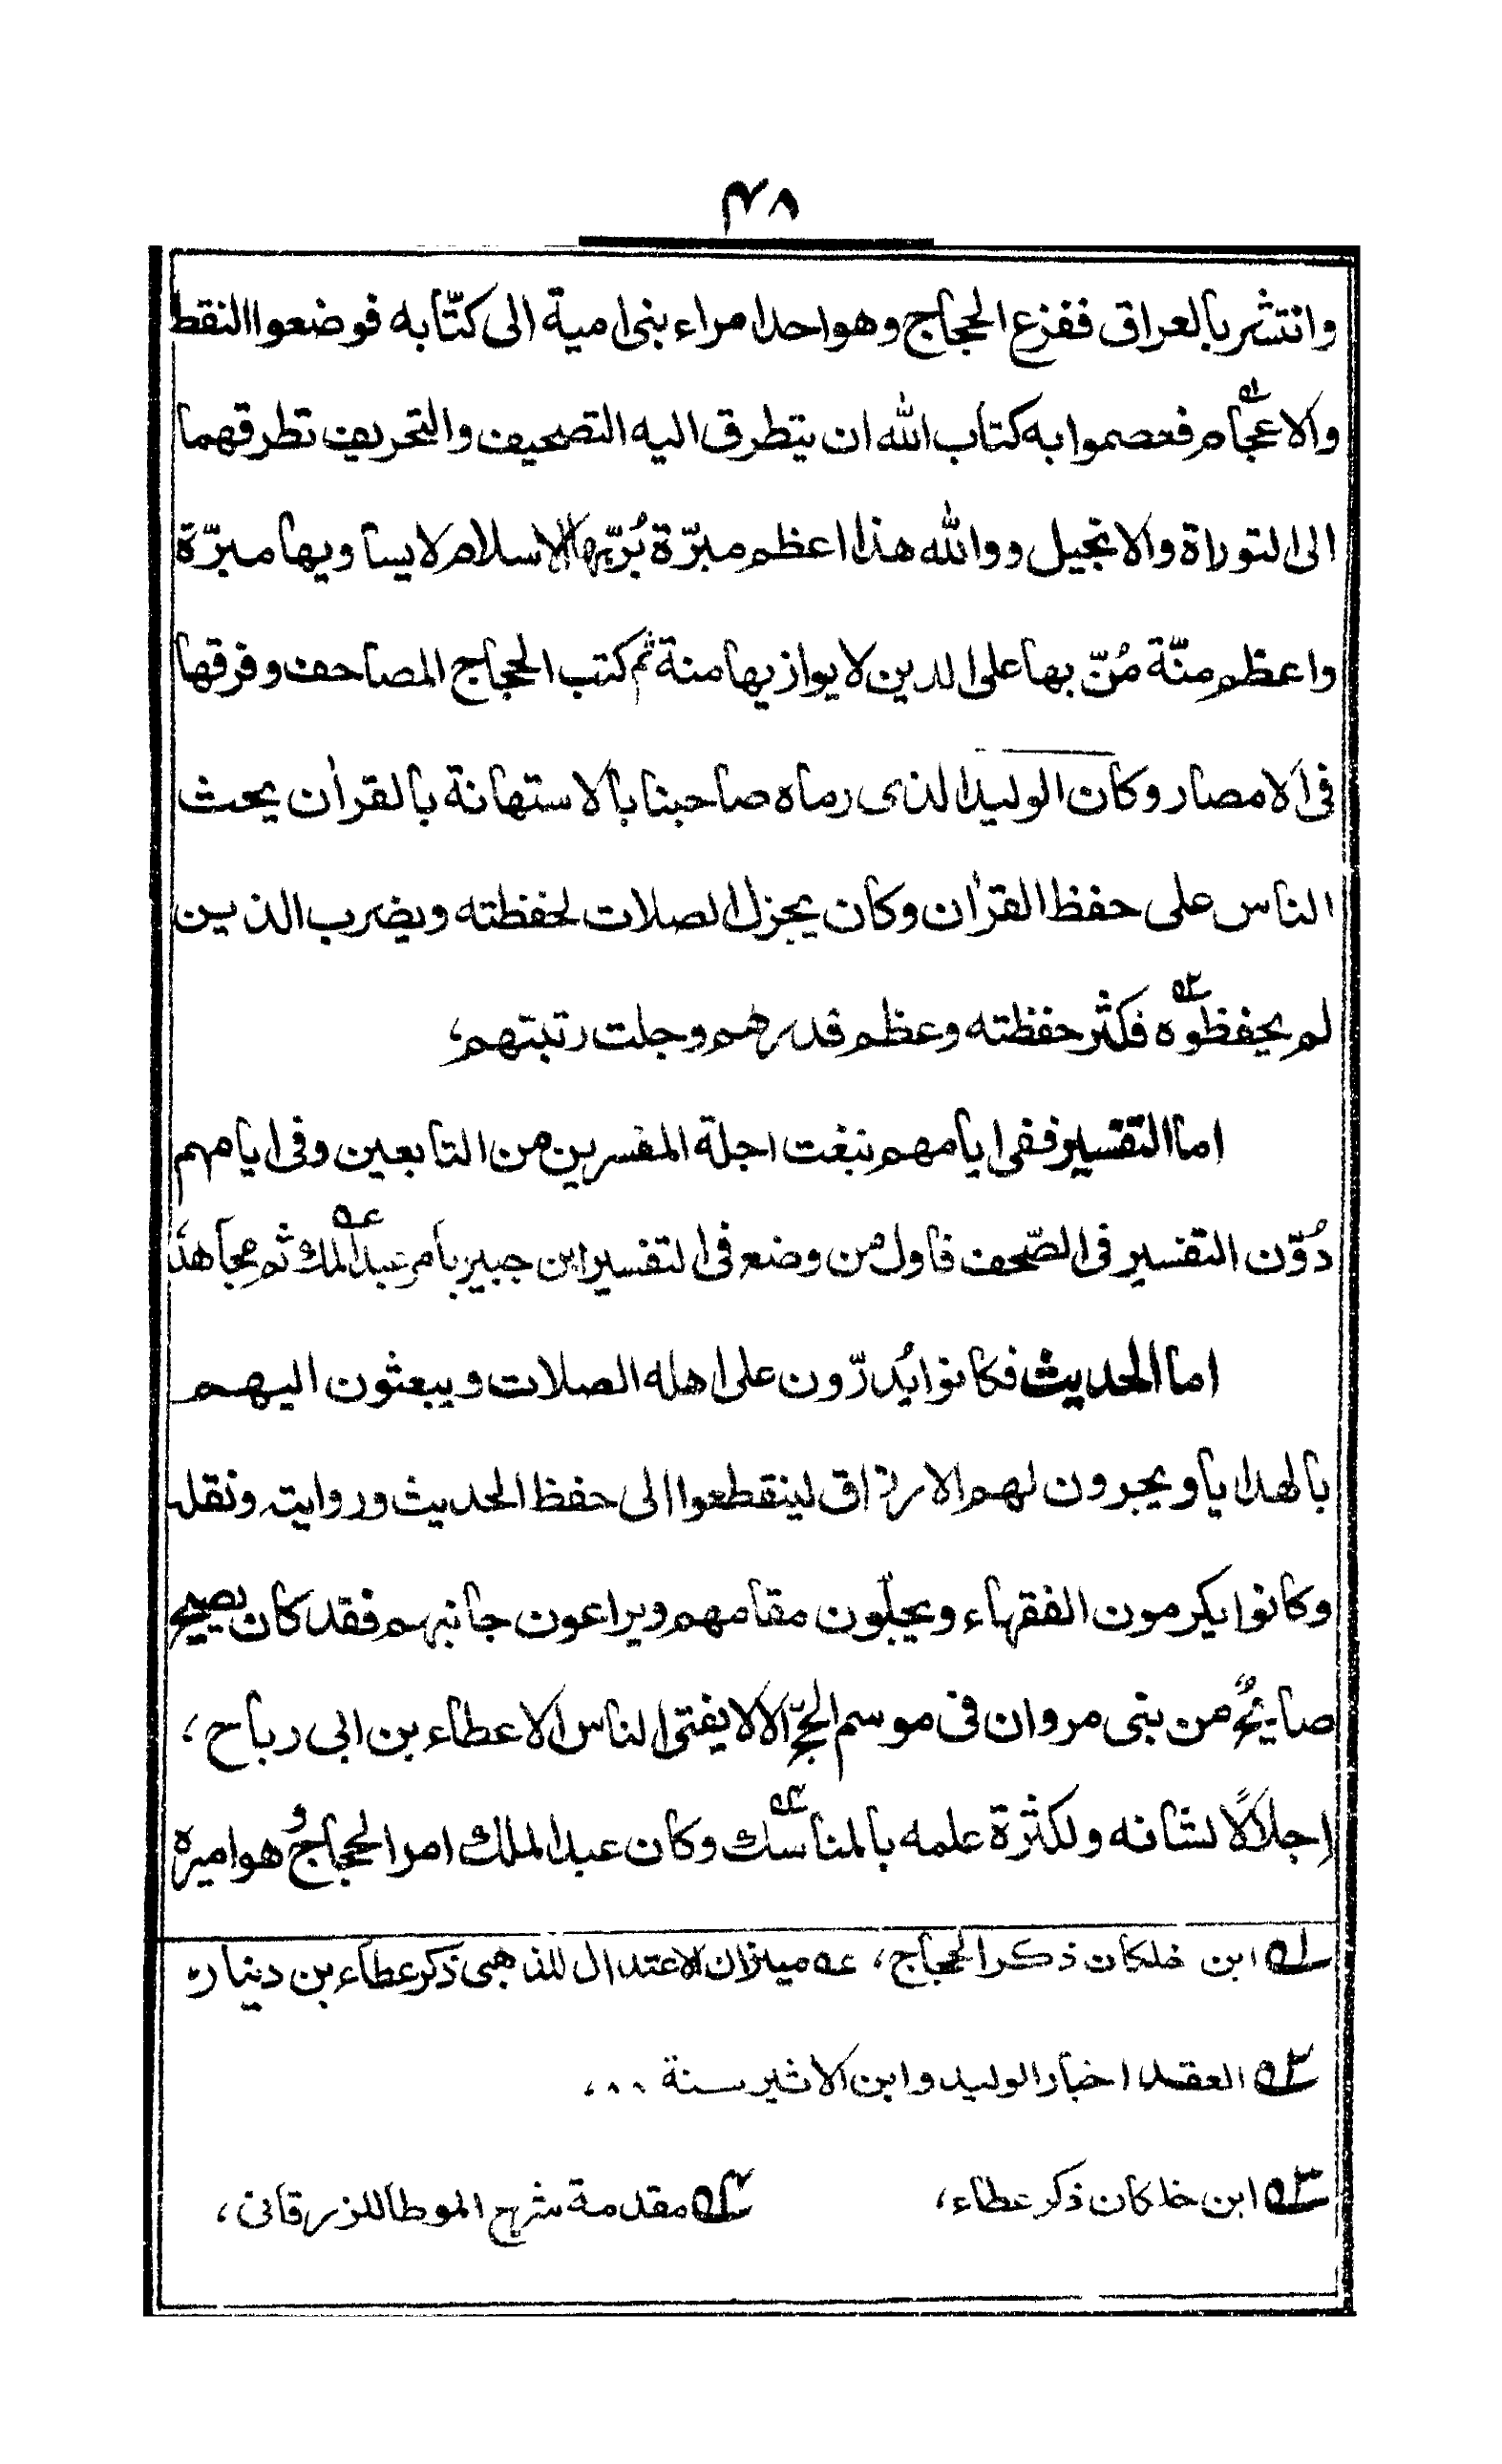 ۴۸
وانتشر بالعراق ففزع الحجاج وهو احد امراء بنی امیة الی کتّابه فوضعوا النقط
والاعجام۱ فعصموا به کتاب الله ان یتطرق الیه التصحیف والتحریف تطرقهما
الی التوراة والانجیل ووالله هذا اعظم مبرّة بُرّ بها الاسلام لا یساویها مبرّة
واعظم منّة مُنّ بها علی الدین لا یوازیها منة ثم کتب الحجاج المصاحف وفرقها
فی الامصار وکان الولید الذی رماه صاحبنا بالاستهانة بالقرأن یحث
الناس علی حفظ القرأن وکان یجزل الصلات لحفظته ویضرب الذین
لم یحفظوه۲ فکثر حفظته وعظم قدرهم وجلت رتبتهم،
اما التفسیر ففی ایامهم نبغت اجلة المفسرین من التابعین وفی ایامهم
دُوّن التفسیر فی الصّحف فاول من وضع فی التفسیر ابن جبیر بامر عبد الملک عه ثم مجاهد
اما الحدیث فکانوا یُدرّون علی اهله الصلات ویبعثون الیهم
بالهدایا ویجرون لهم الارزاق لینقطعوا الی حفظ الحدیث وروایته ونقله
وکانوا یکرمون الفقهاء ویجلّون مقامهم ویراعون جانبهم فقد کان یصیح
صایحٌ من بنی مروان فی موسم الحجّ الا لا یفتی الناس الا عطاء بن ابی رباح،
اجلالًا لشانه ولکثرة علمه بالمناسک۳ وکان عبد الملک امر الحجاج وهو امیره
۱ ابن خلکان ذکر الحجاج، عه میزان الاعتدال للذهبی ذکر عطاء بن دینار،
۲ العقد اخبار الولید وابن الاثیر سنة ...
۳ ابن خلکان ذکر عطاء، ۴ مقدمة شرح الموطا للزرقانی،